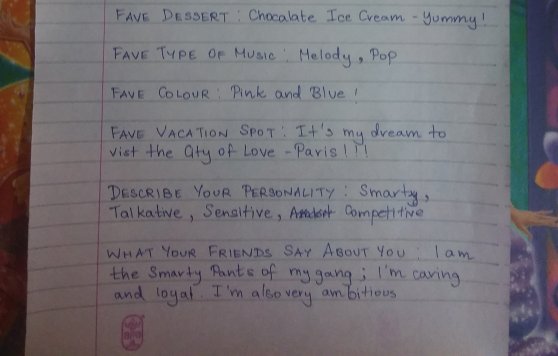 FAVE DESSERT : Chocalate Ice Cream - Yummy!
FAVE TYPE OF MUSIC : Melody, Pop
FAVE COLOUR : Pink and Blue !
FAVE VACATION SPOT : It's my dream to
vist the City of Love - Paris!!!
DESCRIBE YOUR PERSONALITY : Smarty,
Talkative, Sensitive, Competitive
WHAT YOUR FRIENDS SAY ABOUT YOU : I am
the Smarty Pants of my gang ; I'm caring
and loyal. I'm also very ambitious